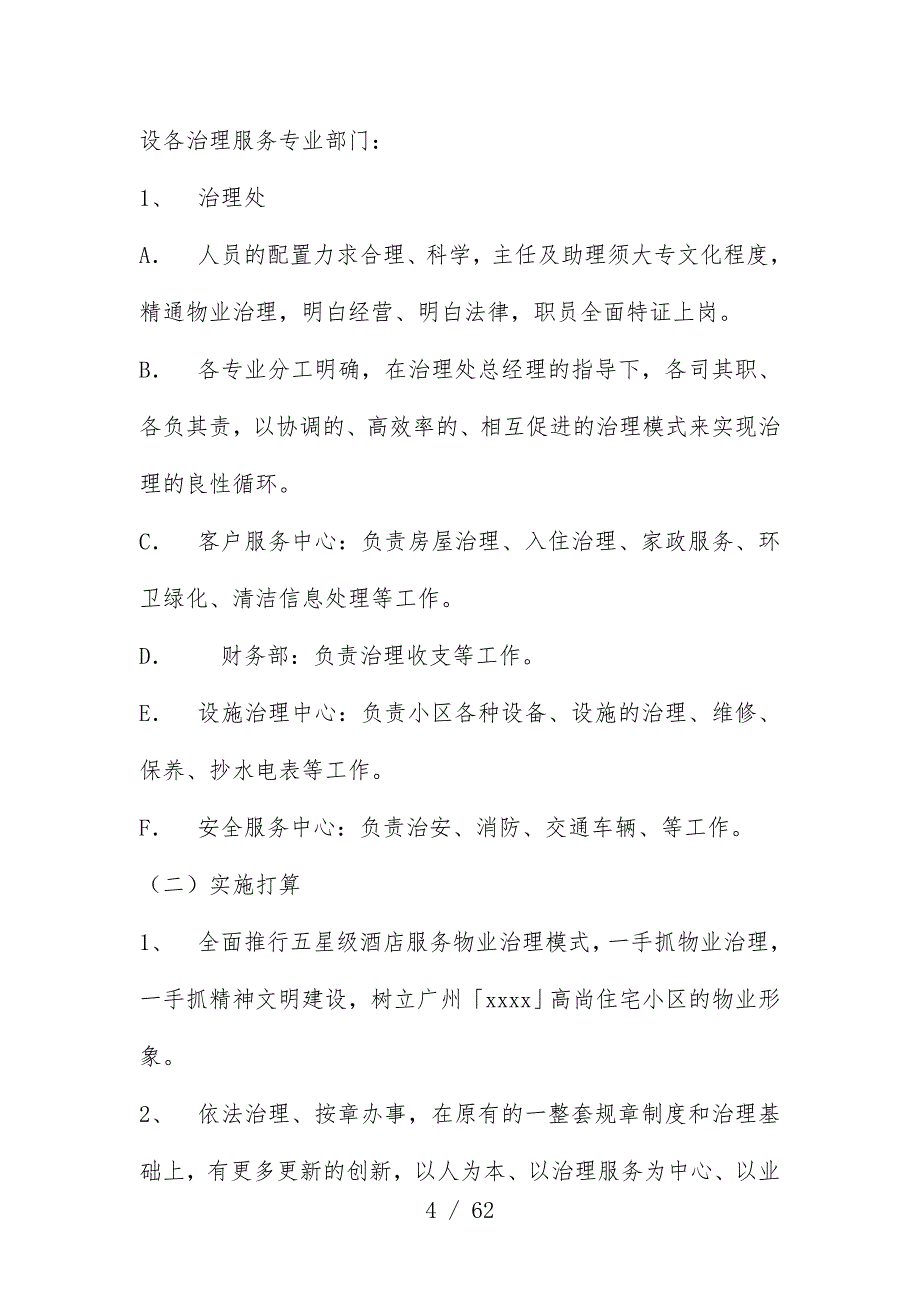 设各治理服务专业部门：
1、 治理处
A． 人员的配置力求合理、科学，主任及助理须大专文化程度，
精通物业治理，明白经营、明白法律，职员全面特证上岗。
B． 各专业分工明确，在治理处总经理的指导下，各司其职、
各负其责，以协调的、高效率的、相互促进的治理模式来实现治
理的良性循环。
C． 客户服务中心：负责房屋治理、入住治理、家政服务、环
卫绿化、清洁信息处理等工作。
D． 财务部：负责治理收支等工作。
E． 设施治理中心：负责小区各种设备、设施的治理、维修、
保养、抄水电表等工作。
F． 安全服务中心：负责治安、消防、交通车辆、等工作。
（二）实施打算
1、 全面推行五星级酒店服务物业治理模式，一手抓物业治理，
一手抓精神文明建设，树立广州「xxxx」高尚住宅小区的物业形
象。
2、 依法治理、按章办事，在原有的一整套规章制度和治理基
础上，有更多更新的创新，以人为本、以治理服务为中心、以业
4 / 62